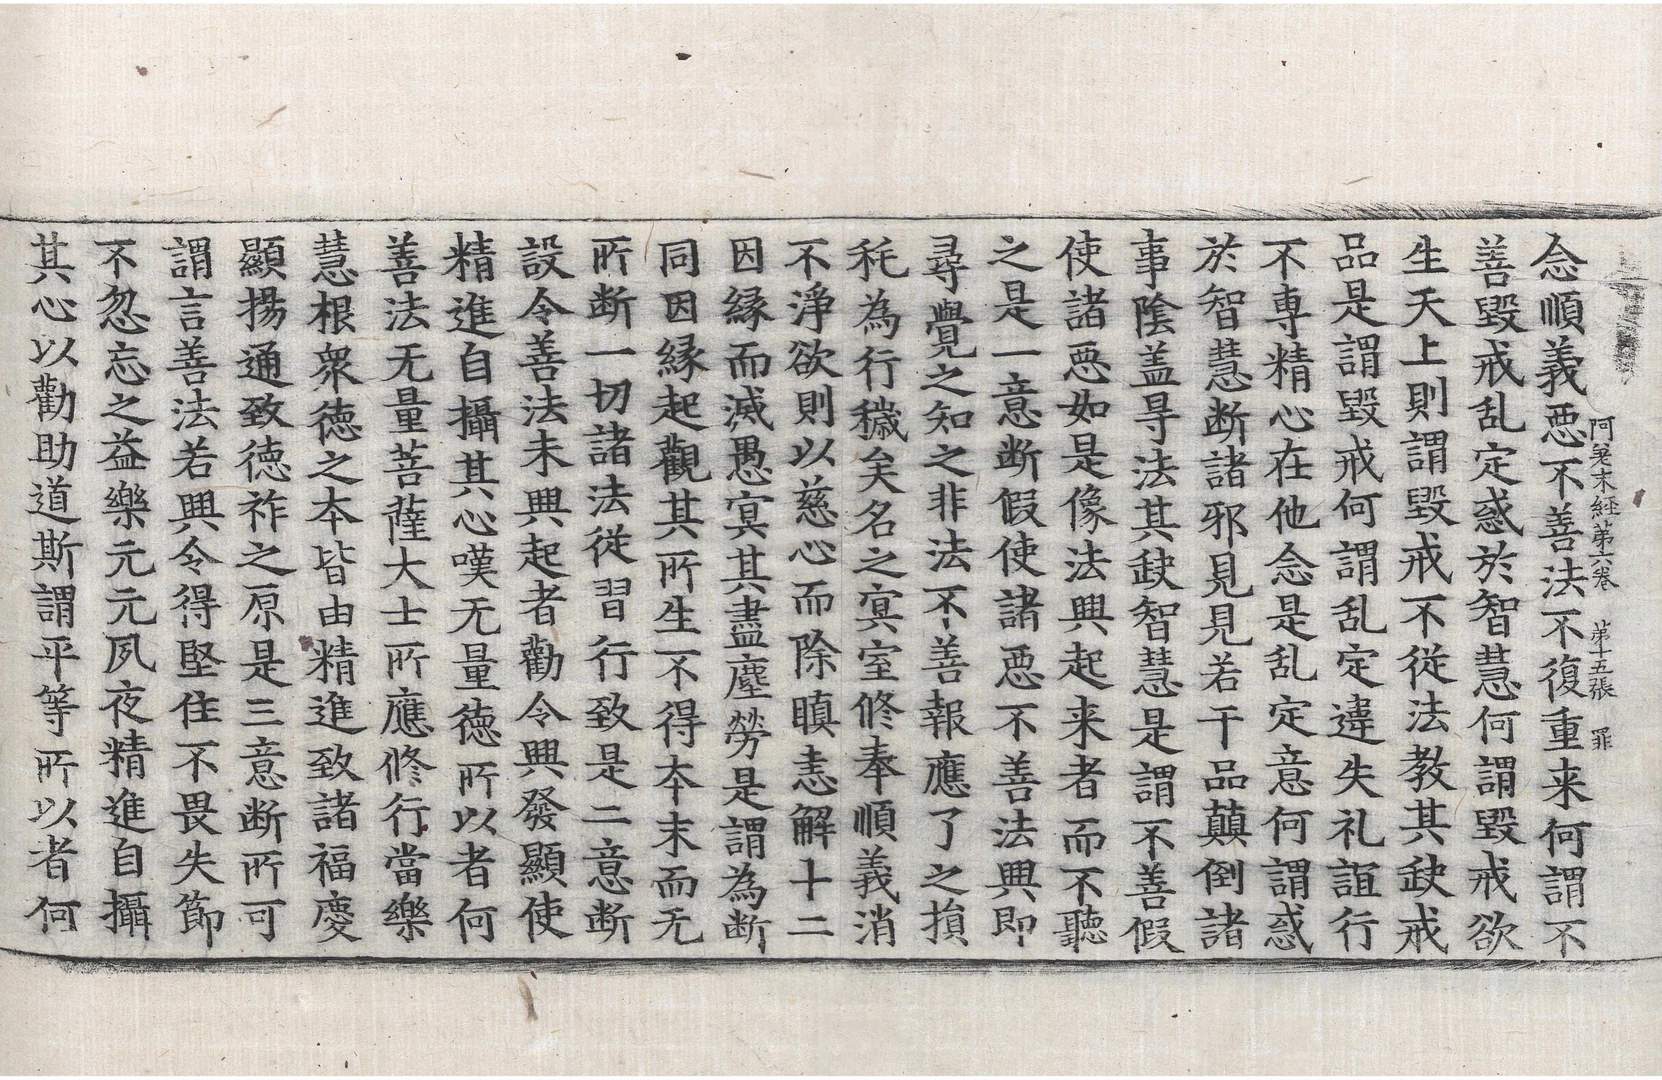 阿差末經第六卷　第十五張　罪
念順義惡不善法不復重来何謂不
善毀戒乱定惑於智慧何謂毀戒欲
生天上則謂毀戒不從法教其缺戒
品是謂毀戒何謂乱定違失礼誼行
不專精心在他念是乱定意何謂惑
於智慧断諸邪見見若干品顛倒諸
事陰盖㝵法其缺智慧是謂不善假
使諸惡如是像法興起来者而不聽
之是一意断假使諸惡不善法興即
尋覺之知之非法不善報應了之損
秏為行穢矣名之㝠室修奉順義消
不淨欲則以慈心而除瞋恚解十二
因縁而滅愚㝠其盡塵勞是謂為断
同因縁起觀其所生不得本末而无
所断一切諸法從習行致是二意断
設令善法未興起者勸令興發顯使
精進自攝其心嘆无量德所以者何
善法无量菩薩大士所應修行當樂
慧根衆德之本皆由精進致諸福慶
顯揚通致德祚之原是三意断所可
謂言善法若興令得堅住不畏失節
不忽忘之益樂元元夙夜精進自攝
其心以勸助道斯謂平等所以者何